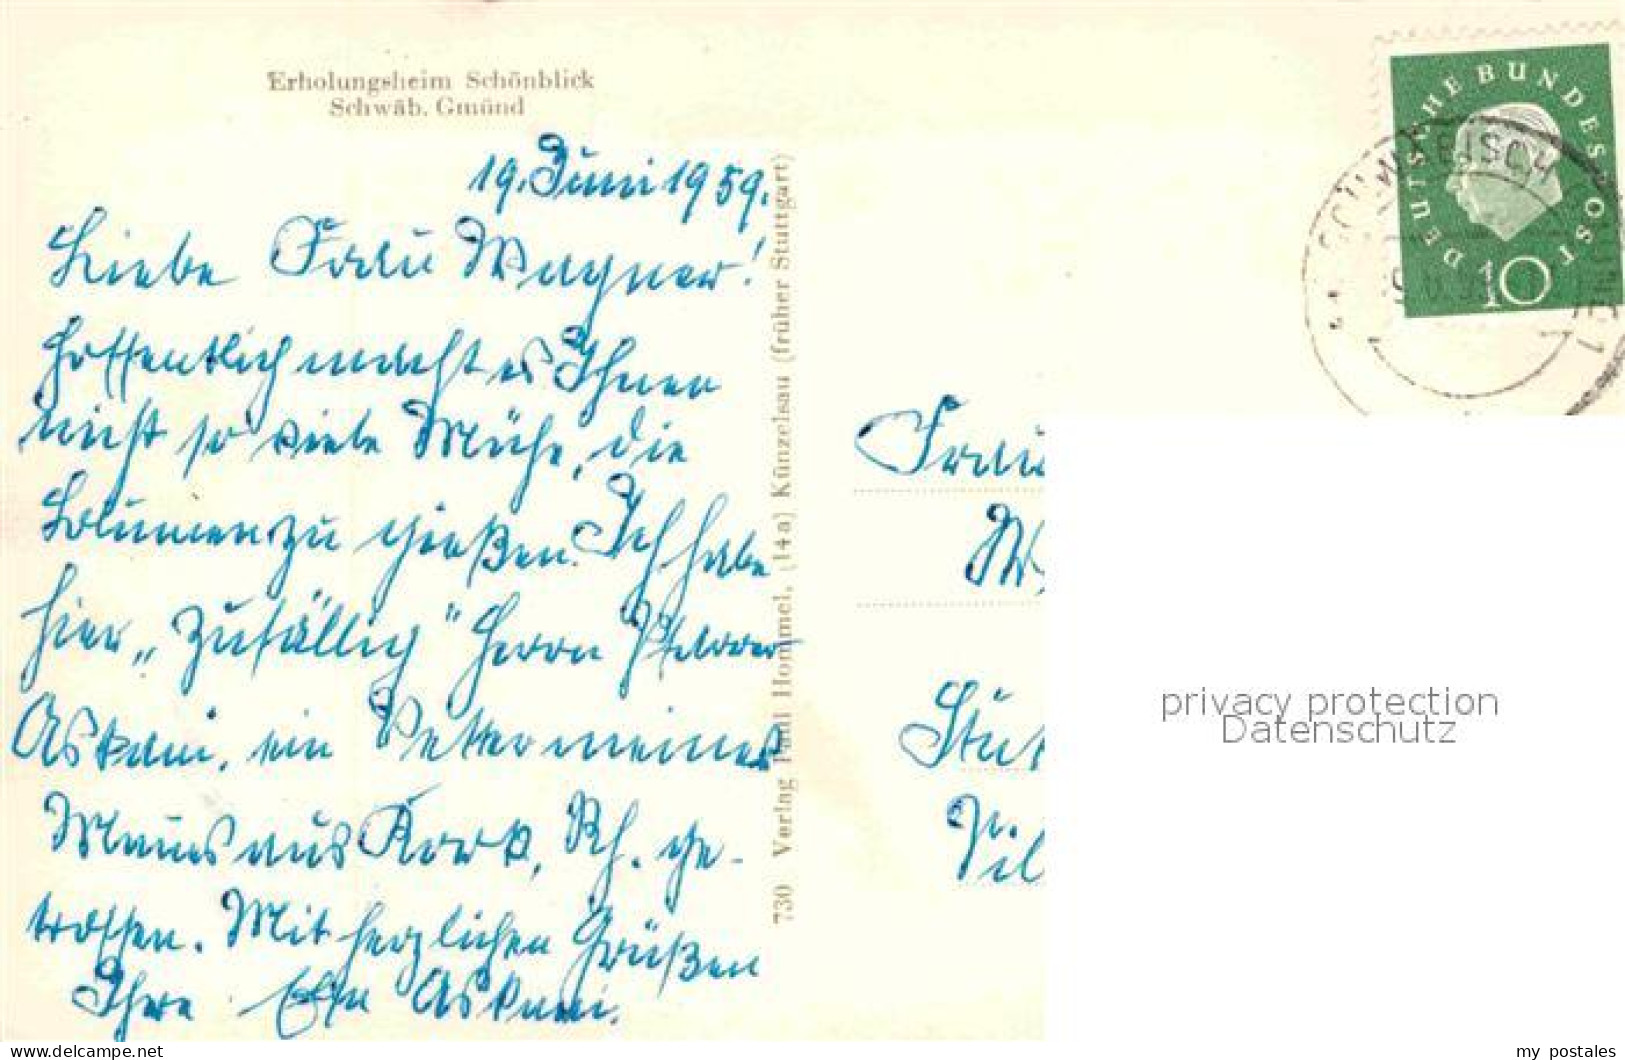 Erholungsheim Schönblick
Schwäb. Gmünd
19. Juni 1959.
Liebe Frau Wagner!
Hoffentlich macht es Ihnen
nicht so viele Mühe, die
Blumen zu gießen. Ich habe
hier „Zufällig“ Herrn Pfarrer
Askani, ein Vetter meines
Manns aus Kork, Rh. ge-
troffen. Mit herzlichen Grüßen
Ihre Askani.
730 Verlag Paul Hommel, (14a) Künzelsau (früher Stuttgart)
DEUTSCHE BUNDESPOST
10
Frau
W
Stut
privacy protection
Datenschutz
delcampe.net
my_postales